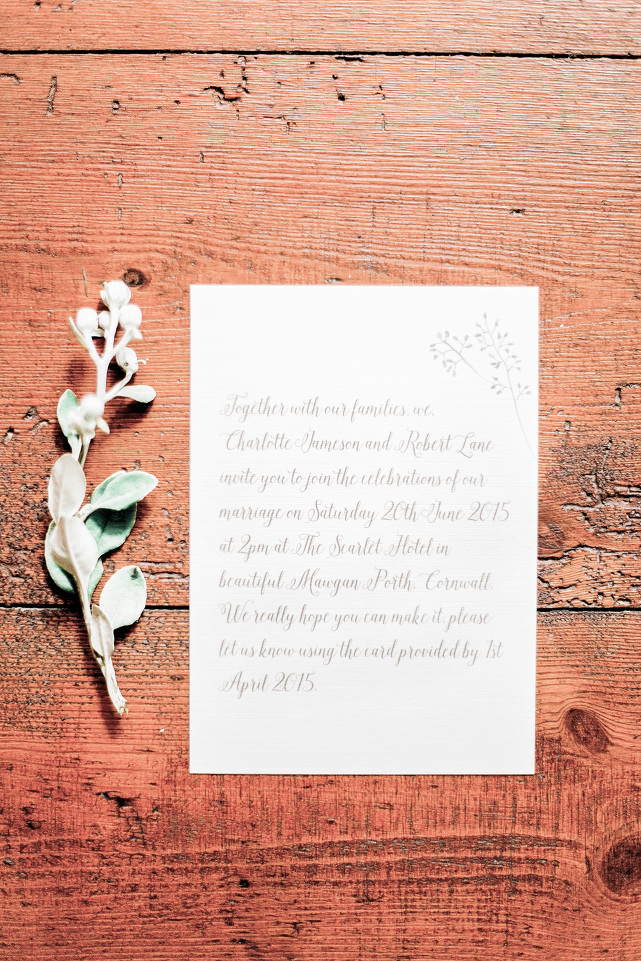 Together with our families, we,
Charlotte Jameson and Robert Lane
invite you to join the celebrations of our
marriage on Saturday 20th June 2015
at 2pm at The Scarlet Hotel in
beautiful Mawgan Porth, Cornwall.
We really hope you can make it, please
let us know using the card provided by 1st
April 2015.